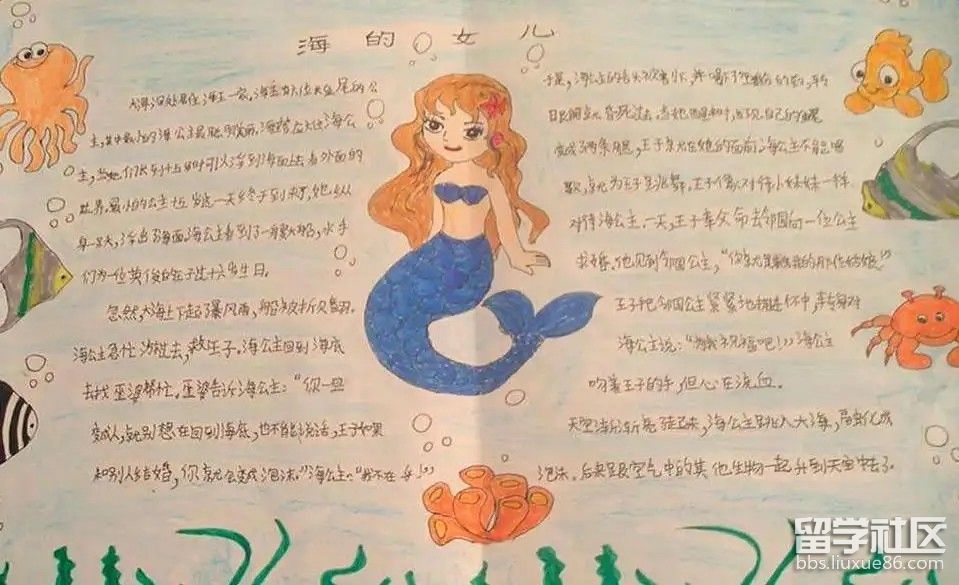 海的女儿
大海深处居住海王一家,海王有六位人鱼尾的公
主,其中最小的海公主最聪明美丽,海公
主,当她们长到十五岁时可以浮到海面去看外面的
世界。最小的公主这一天终于到来了,她纵
身一跃,浮出了海面。海公主看到了一艘大船,水手
们为一位英俊的王子过十六岁生日。
忽然,大海上下起暴风雨,船被折断翻。
海公主急忙游过去,救王子。海公主回到海底
去找巫婆帮忙。巫婆告诉海公主:“你一旦
变成人,就别想在回到海底,也不能说话,王子如果
和别人结婚,你就会变成泡沫。”海公主:“我不在乎!”
于是,海公主的舌头被割下,并喝下了的药,
昏死过去。当她醒来时,发现自己的尾
变成了两条腿,王子来到在她的面前,海公主不能唱
歌,就为王子跳舞。王子像对待小妹妹一样
对待海公主。一天,王子奉父命去邻国向一位公主
求婚。他见到邻国公主,“你就是救我的那位姑娘!”
王子把邻国公主紧紧地抱进怀中,转身对
海公主说:“为我祝福吧!”海公主
吻着王子的手,但心在流血。
天空渐渐亮起来,海公主跳入大海,身体化成
泡沫。后来跟空气中的其他生物一起升到天空中去了。
留学社区
bbs.liuxue86.com